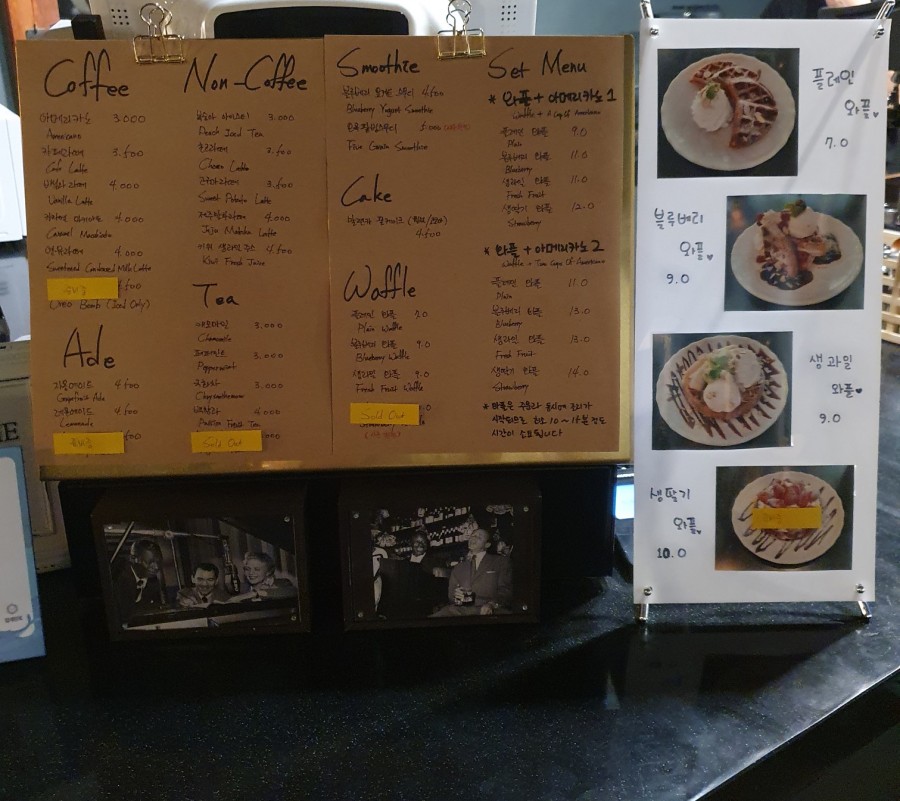 Coffee
아메리카노 3.000
Americano
카페라떼 3.500
Cafe Latte
바닐라라떼 4.000
Vanilla Latte
카라멜 마끼아또 4.000
Caramel Macchiato
연유라떼 4.000
Sweetened Condensed Milk Latte
Oreo Bomb (Iced Only)
Ade
자몽에이드 4.500
Grapefruit Ade
레몬에이드 4.500
Lemonade
Non-Coffee
복숭아 아이스티 3.000
Peach Iced Tea
초코라떼 3.500
Choco Latte
고구마라떼 3.500
Sweet Potato Latte
제주말차라떼 4.000
Jeju Matcha Latte
키위 생과일쥬스 4.500
Kiwi Fresh Juice
Tea
캐모마일 3.000
Chamomile
페퍼민트 3.000
Peppermint
국화차 3.000
Chrysanthemum
4.000
Fresh Tea
Sold Out
Smoothie
블루베리 요거트 스무디 4.500
Blueberry Yogurt Smoothie
오곡 스무디
Five Grain Smoothie
Cake
4.500
Waffle
플레인 와플 7.0
Plain Waffle
블루베리 와플 9.0
Blueberry Waffle
생과일 와플 9.0
Fresh Fruit Waffle
Sold Out
Set Menu
* 와플 + 아메리카노 1
Waffle + A Cup Of Americano
플레인 와플 9.0
Plain
블루베리 와플 11.0
Blueberry
생과일 와플 11.0
Fresh Fruit
생딸기 와플 12.0
Strawberry
* 와플 + 아메리카노 2
Waffle + Two Cups Of Americano
플레인 와플 11.0
Plain
블루베리 와플 13.0
Blueberry
생과일 와플 13.0
Fresh Fruit
생딸기 와플 14.0
Strawberry
* 와플은 주문과 동시에 조리가
시작되므로 약 10~15분 정도
시간이 소요됩니다
플레인
와플♥
7.0
블루베리
와플♥
9.0
생과일
와플♥
9.0
생딸기
와플♥
10.0